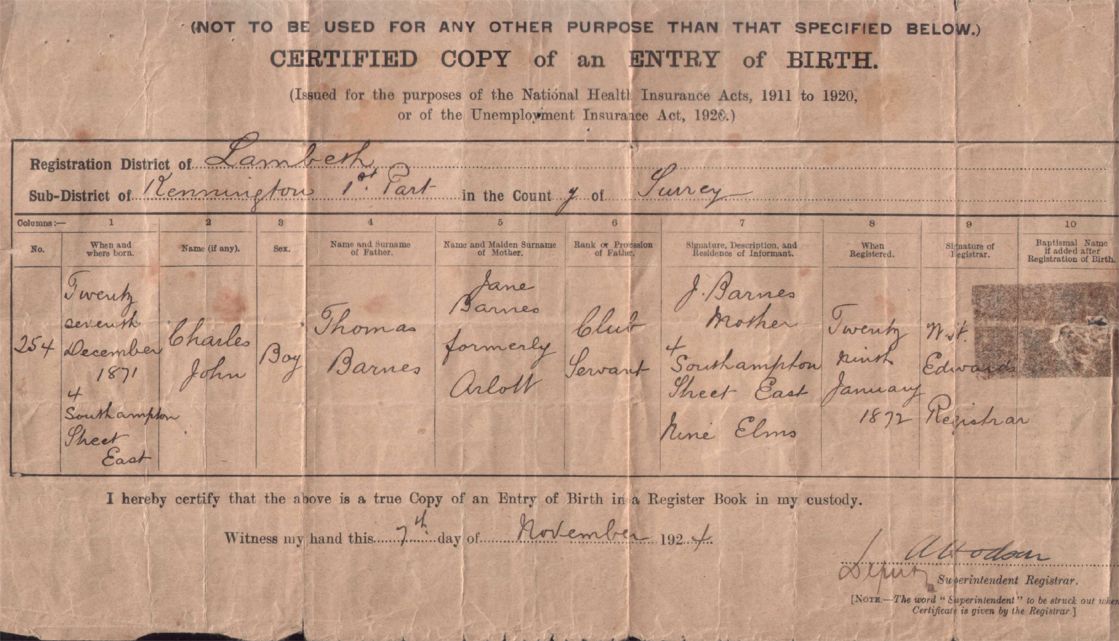 (NOT TO BE USED FOR ANY OTHER PURPOSE THAN THAT SPECIFIED BELOW.)
CERTIFIED COPY of an ENTRY of BIRTH.
(Issued for the purposes of the National Health Insurance Acts, 1911 to 1920,
or of the Unemployment Insurance Act, 1920.)
Registration District of Lambeth
Sub-District of Kennington 1st Part in the County of Surrey
Columns:— 1 2 3 4 5 6 7 8 9 10
No.
When and
where born.
Name (if any).
Sex.
Name and Surname
of Father.
Name and Maiden Surname
of Mother.
Rank or Profession
of Father.
Signature, Description, and
Residence of Informant.
When
Registered.
Signature of
Registrar.
Baptismal Name
if added after
Registration of Birth.
254
Twenty
seventh
December
1871
4
Southampton
Street
East
Charles
John
Boy
Thomas
Barnes
Jane
Barnes
formerly
Arlott
Club
Servant
J. Barnes
Mother
4
Southampton
Street East
Nine Elms
Twenty
ninth
January
1872
Edwards
Registrar
I hereby certify that the above is a true Copy of an Entry of Birth in a Register Book in my custody.
Witness my hand this 7th day of November 1924
A Hodson
Deputy Superintendent Registrar.
[NOTE.—The word "Superintendent" to be struck out when
Certificate is given by the Registrar.]